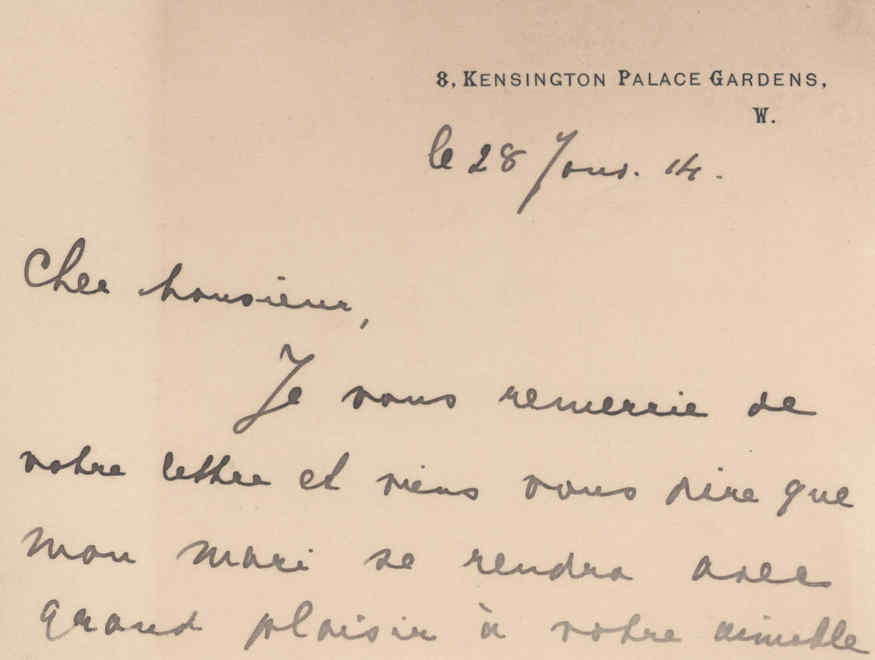 8, KENSINGTON PALACE GARDENS,
W.
le 28 Janv. 14.
Cher Monsieur,
Je vous remercie de
votre lettre et viens vous dire que
mon mari se rendra avec
grand plaisir à votre aimable